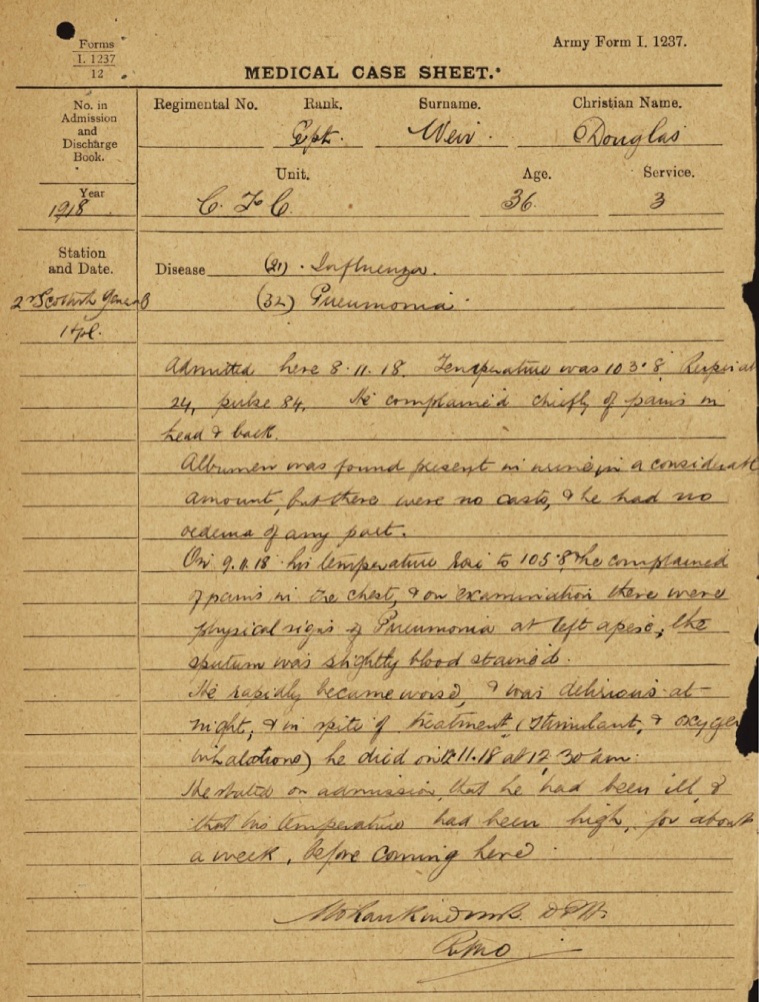 Forms
I. 1237
12
Army Form I. 1237.
MEDICAL CASE SHEET.*
No. in
Admission
and
Discharge
Book.
Regimental No. Rank. Surname. Christian Name.
Cpt. Weir. Douglas
Unit. Age. Service.
Year
1918
C. F. C. 36. 3
Station
and Date.
Disease (21) . Influenza.
2nd Scottish General (32) Pneumonia.
Hpl.
Admitted here 8.11.18. Temperature was 103.8 Respirat
24, pulse 84. He complained chiefly of pains in
head & back.
Albumen was found present in urine in a considerable
amount, but there were no casts, & he had no
oedema of any part.
On 9.11.18 his temperature to 105.8, he complained
of pains in the chest, & on examination there were
physical signs of Pneumonia at left apex, the
sputum was slightly blood stained.
He rapidly became worse, & was delirious at
night, & in spite of treatment (stimulant, & oxygen
inhalations) he died on 11.18 at 12.30 am.
He stated on admission, that he had been ill &
that his temperature had been high, for about
a week, before coming here.
RMO